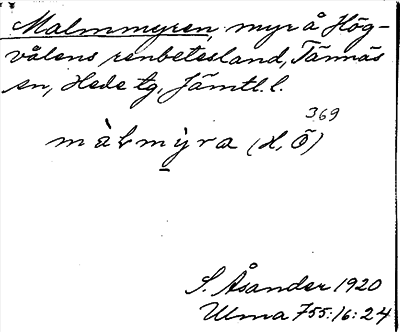 Malmmyren, myr å Hög-
vålens renbetesland, Tännäs
sn, Hede tg, Jämtl. l.
369
màḷmỳra (H, Ö)
S. Åsander 1920
Ulma 755:16:24